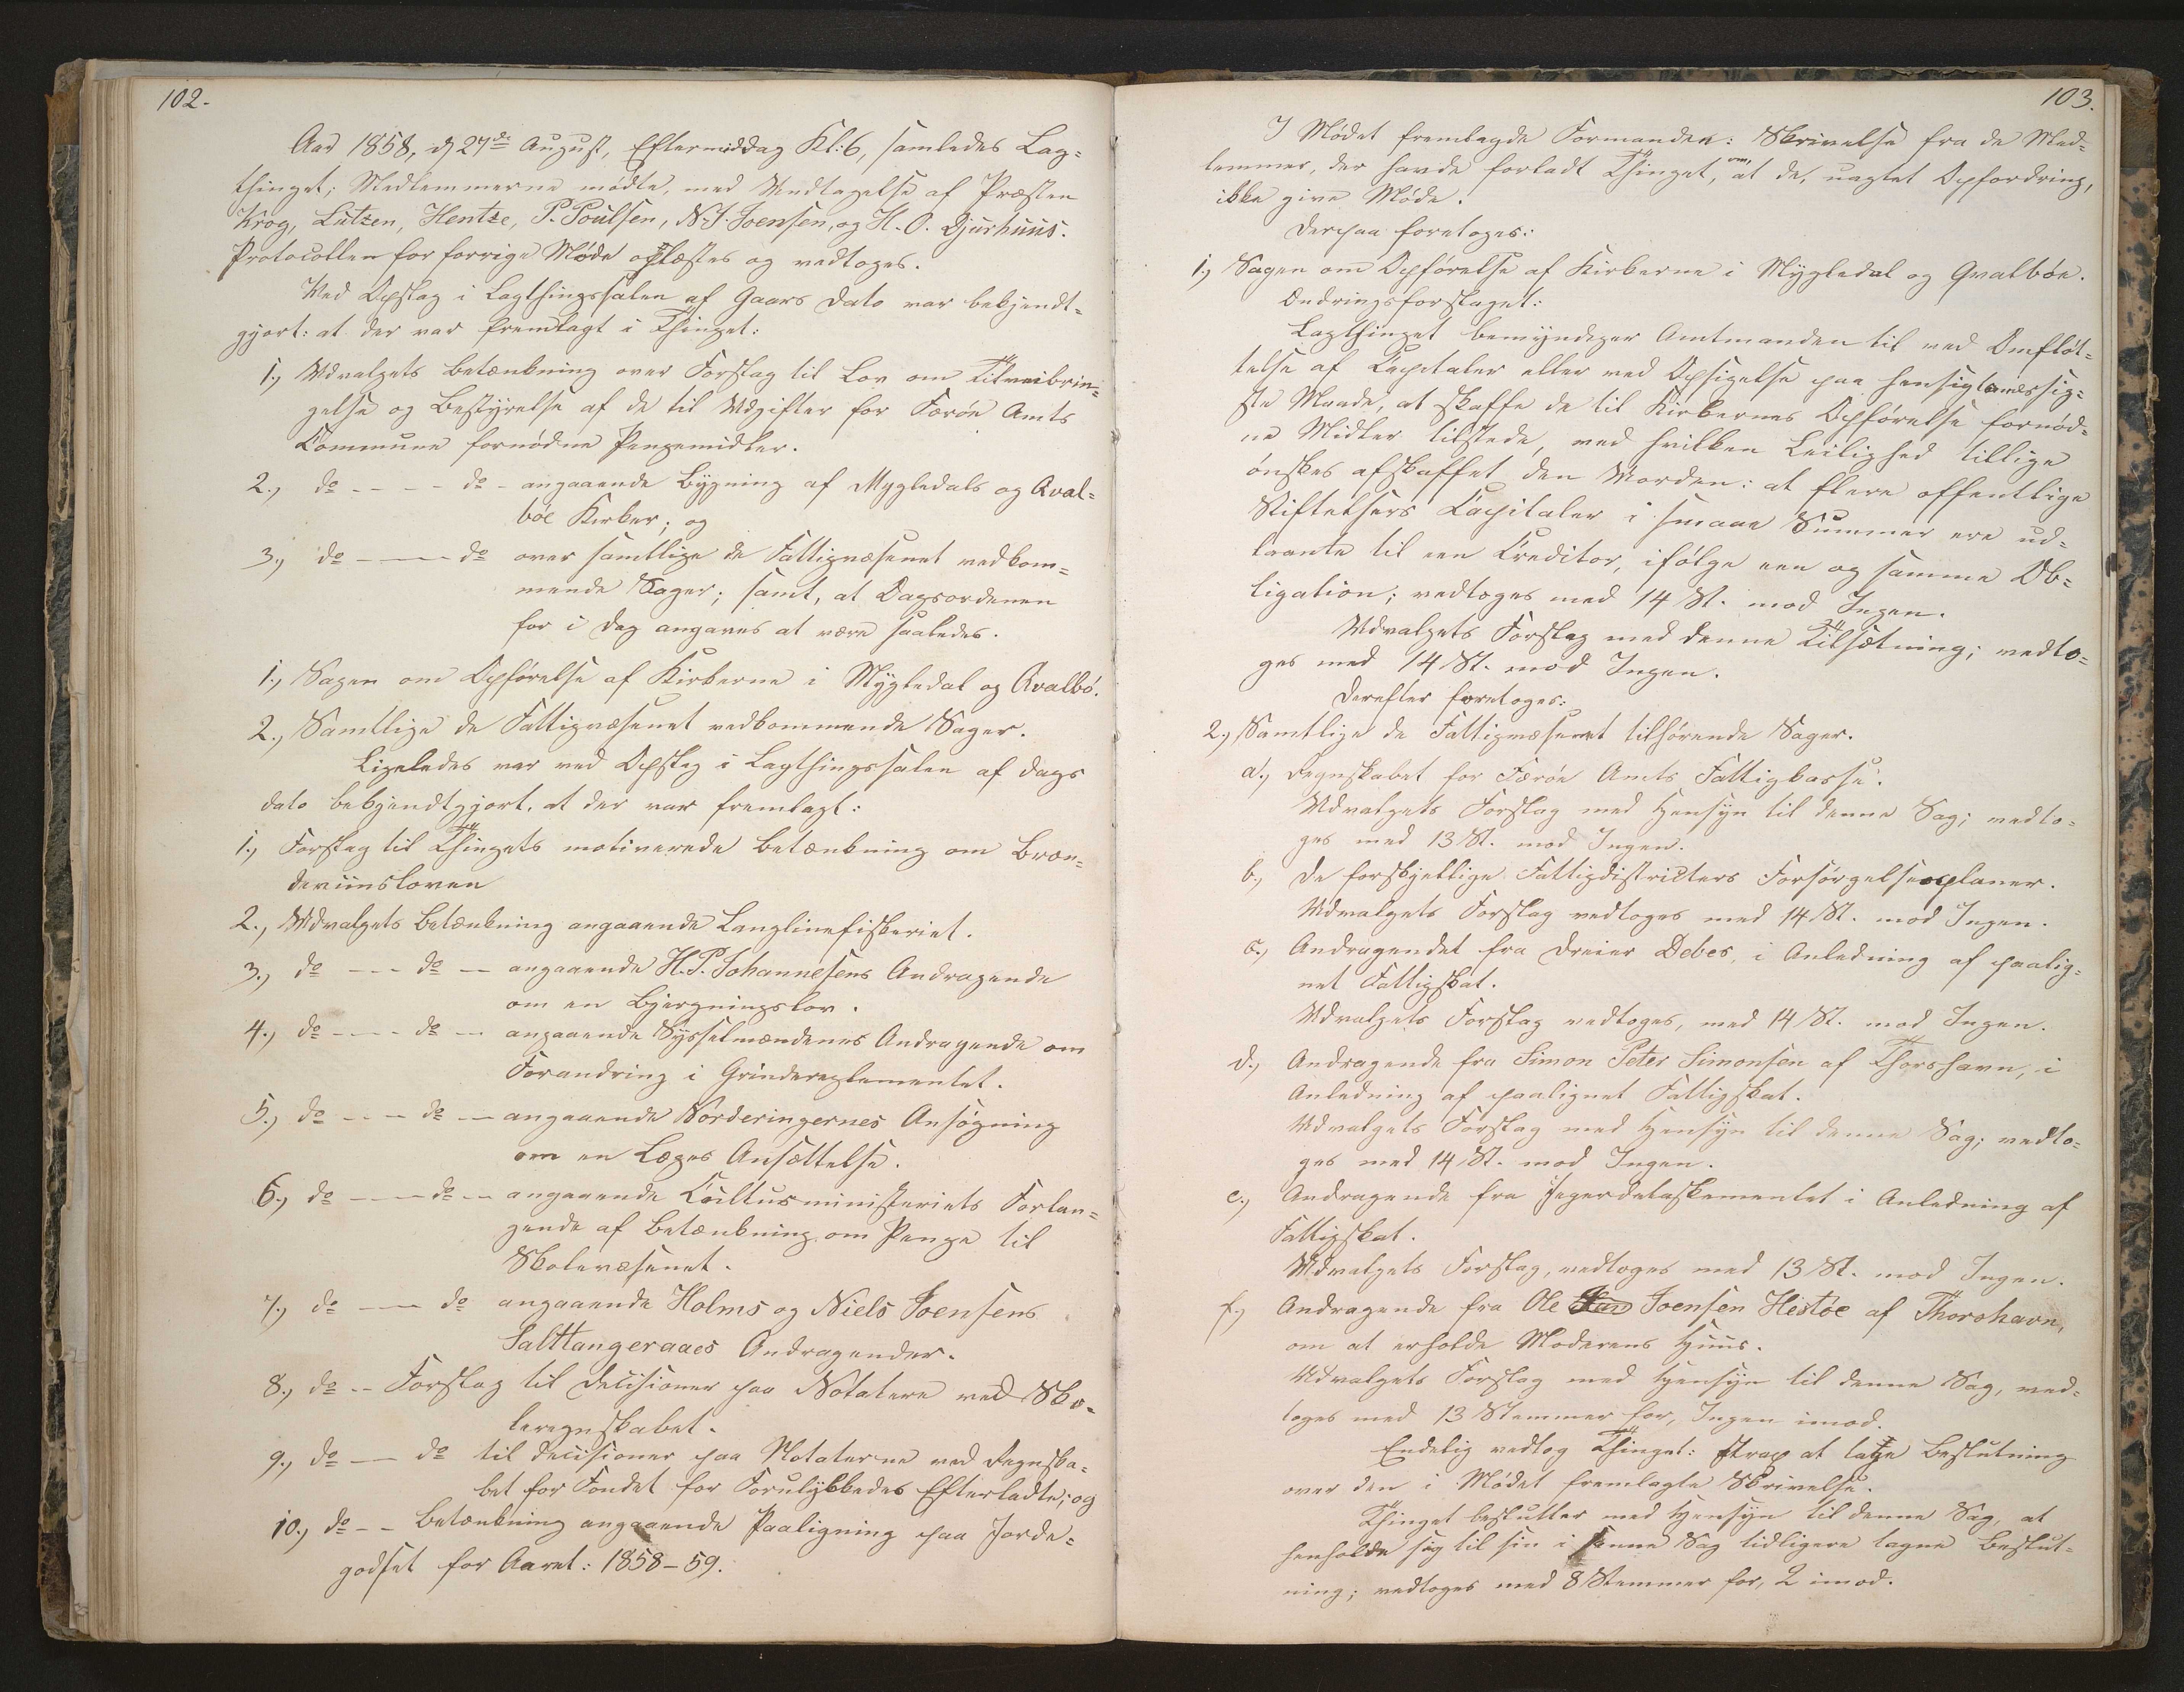 102.
Aar 1858, d 27de August, Eftermiddag Kl: 6, samledes Lag=
thinget; Medlemmerne mødte, med Undtagelse af Præsten
Krog, Lützen, Hentze, P. Poulsen, N. J. Joensen, og H. O. Djurhuus.
Protocollen for forrige Møde oplæstes og vedtoges.
Ved Opslag i Lagthingssalen af Gaars Dato var bekjendt=
gjort: at der var fremlagt i Thinget:
1., Udvalgets Betænkning over Forslag til Lov om Tilveiebrin=
gelse og Bestyrelse af de til Udgifter for Færøe Amts
Commune fornødne Pengemidler.
2., do - - - - do - angaaende Bygning af Mygledals og Qval=
bøe Kirker; og
3., do - - - do over samtlige de Fattigvæsenet vedkom=
mende Sager; samt, at Dagsordenen
for i Dag angaves at være saaledes.
1., Sagen om Opførelse af Kirkerne i Mygledal og Qvalbø.
2., Samtlige de Fattigvæsenet vedkommende Sager.
Ligeledes var ved Opslag i Lagthingssalen af Dags
Dato bekjendtgjort, at der var fremlagt:
1., Forslag til Thingets motiverede Betænkning om Bræn=
deviinsloven
2., Udvalgets Betænkning angaaende Langlinefiskeriet.
3., do - - - do - angaaende H. P. Johannesens Andragende
om en Bjergningslov.
4., do - - - do - angaaende Sysselmændenes Andragende om
Forandring i Grindereglementet.
5., do - - - do - angaaende Norderingernes Ansøgning
om en Læges Ansættelse.
6., do - - - do - angaaende Cultusministeriets Forlan=
gende af Betænkning om Penge til
Skolevæsenet.
7., do - - - do angaaende Holms og Niels Joensens
Salttangeraaes Andragender.
8., do - - Forslag til Decisioner paa Notatere ved Sko=
leregnskabet.
9., do - - do til Decisioner paa Notaterne ved Regnska=
bet for Fondet for Forulykkedes Efterladte; og
10., do - - Betænkning angaaende Paaligning paa Jorde=
godset for Aaret: 1858–59.
103.
I Mødet fremlagde Formanden: Skrivelse fra de Med=
lemmer, der havde forladt Thinget, om, at de, uagtet Opfordring,
ikke give Møde.
Derpaa foretoges:
1., Sagen om Opførelse af Kirkerne i Mygledal og Qvalbøe.
Ændringsforslaget:
Lagthinget bemyndiger Amtmanden til ved Omflyt=
telse af Capitaler eller ved Opsigelse paa hensigtsmæssig=
ste Maade, at skaffe de til Kirkernes Opførelse fornød=
ne Midler tilstede, ved hvilken Leilighed tillige
ønskes afskaffet den Uorden: at flere offentlige
Stiftelsers Capitaler i smaae Summer ere ud=
laante til een Creditor, ifølge een og samme Ob=
ligation; vedtoges med 14 St. mod Ingen.
Udvalgets Forslag med denne Tilsætning; vedto=
ges med 14 St. mod Ingen.
Derefter foretoges:
2., Samtlige de Fattigvæsenet tilhørende Sager.
a., Regnskabet for Færøe Amts Fattigkasse.
Udvalgets Forslag med Hensyn til denne Sag; vedto=
ges med 13 St. mod Ingen.
b., De forskjellige Fattigdistricters Forsørgelsesplaner.
Udvalgets Forslag vedtoges med 14 St. mod Ingen.
c., Andragendet fra Dreier Debes, i Anledning af paalig=
net Fattigskat.
Udvalgets Forslag vedtoges, med 14 St. mod Ingen.
d., Andragende fra Simon Peter Simonsen af Thorshavn, i
Anledning af paalignet Fattigskat.
Udvalgets Forslag med Hensyn til denne Sag; vedto=
ges med 14 St. mod Ingen.
e., Andragende fra Jegerdetaschementet i Anledning af
Fattigskat.
Udvalgets Forslag, vedtoges med 13 St. mod Ingen.
f., Andragende fra Ole Joensen Hestøe af Thorshavn,
om at erholde Moderens Huus.
Udvalgets Forslag med Hensyn til denne Sag, ved=
toges med 13 Stemmer for, Ingen imod.
Endelig vedtog Thinget: strax at tage Beslutning
over den i Mødet fremlagte Skrivelse.
Thinget beslutter med Hensyn til denne Sag, at
henholde sig til sin i samme Sag tidligere tagne Beslut=
ning; vedtoges med 8 Stemmer for, 2 imod.